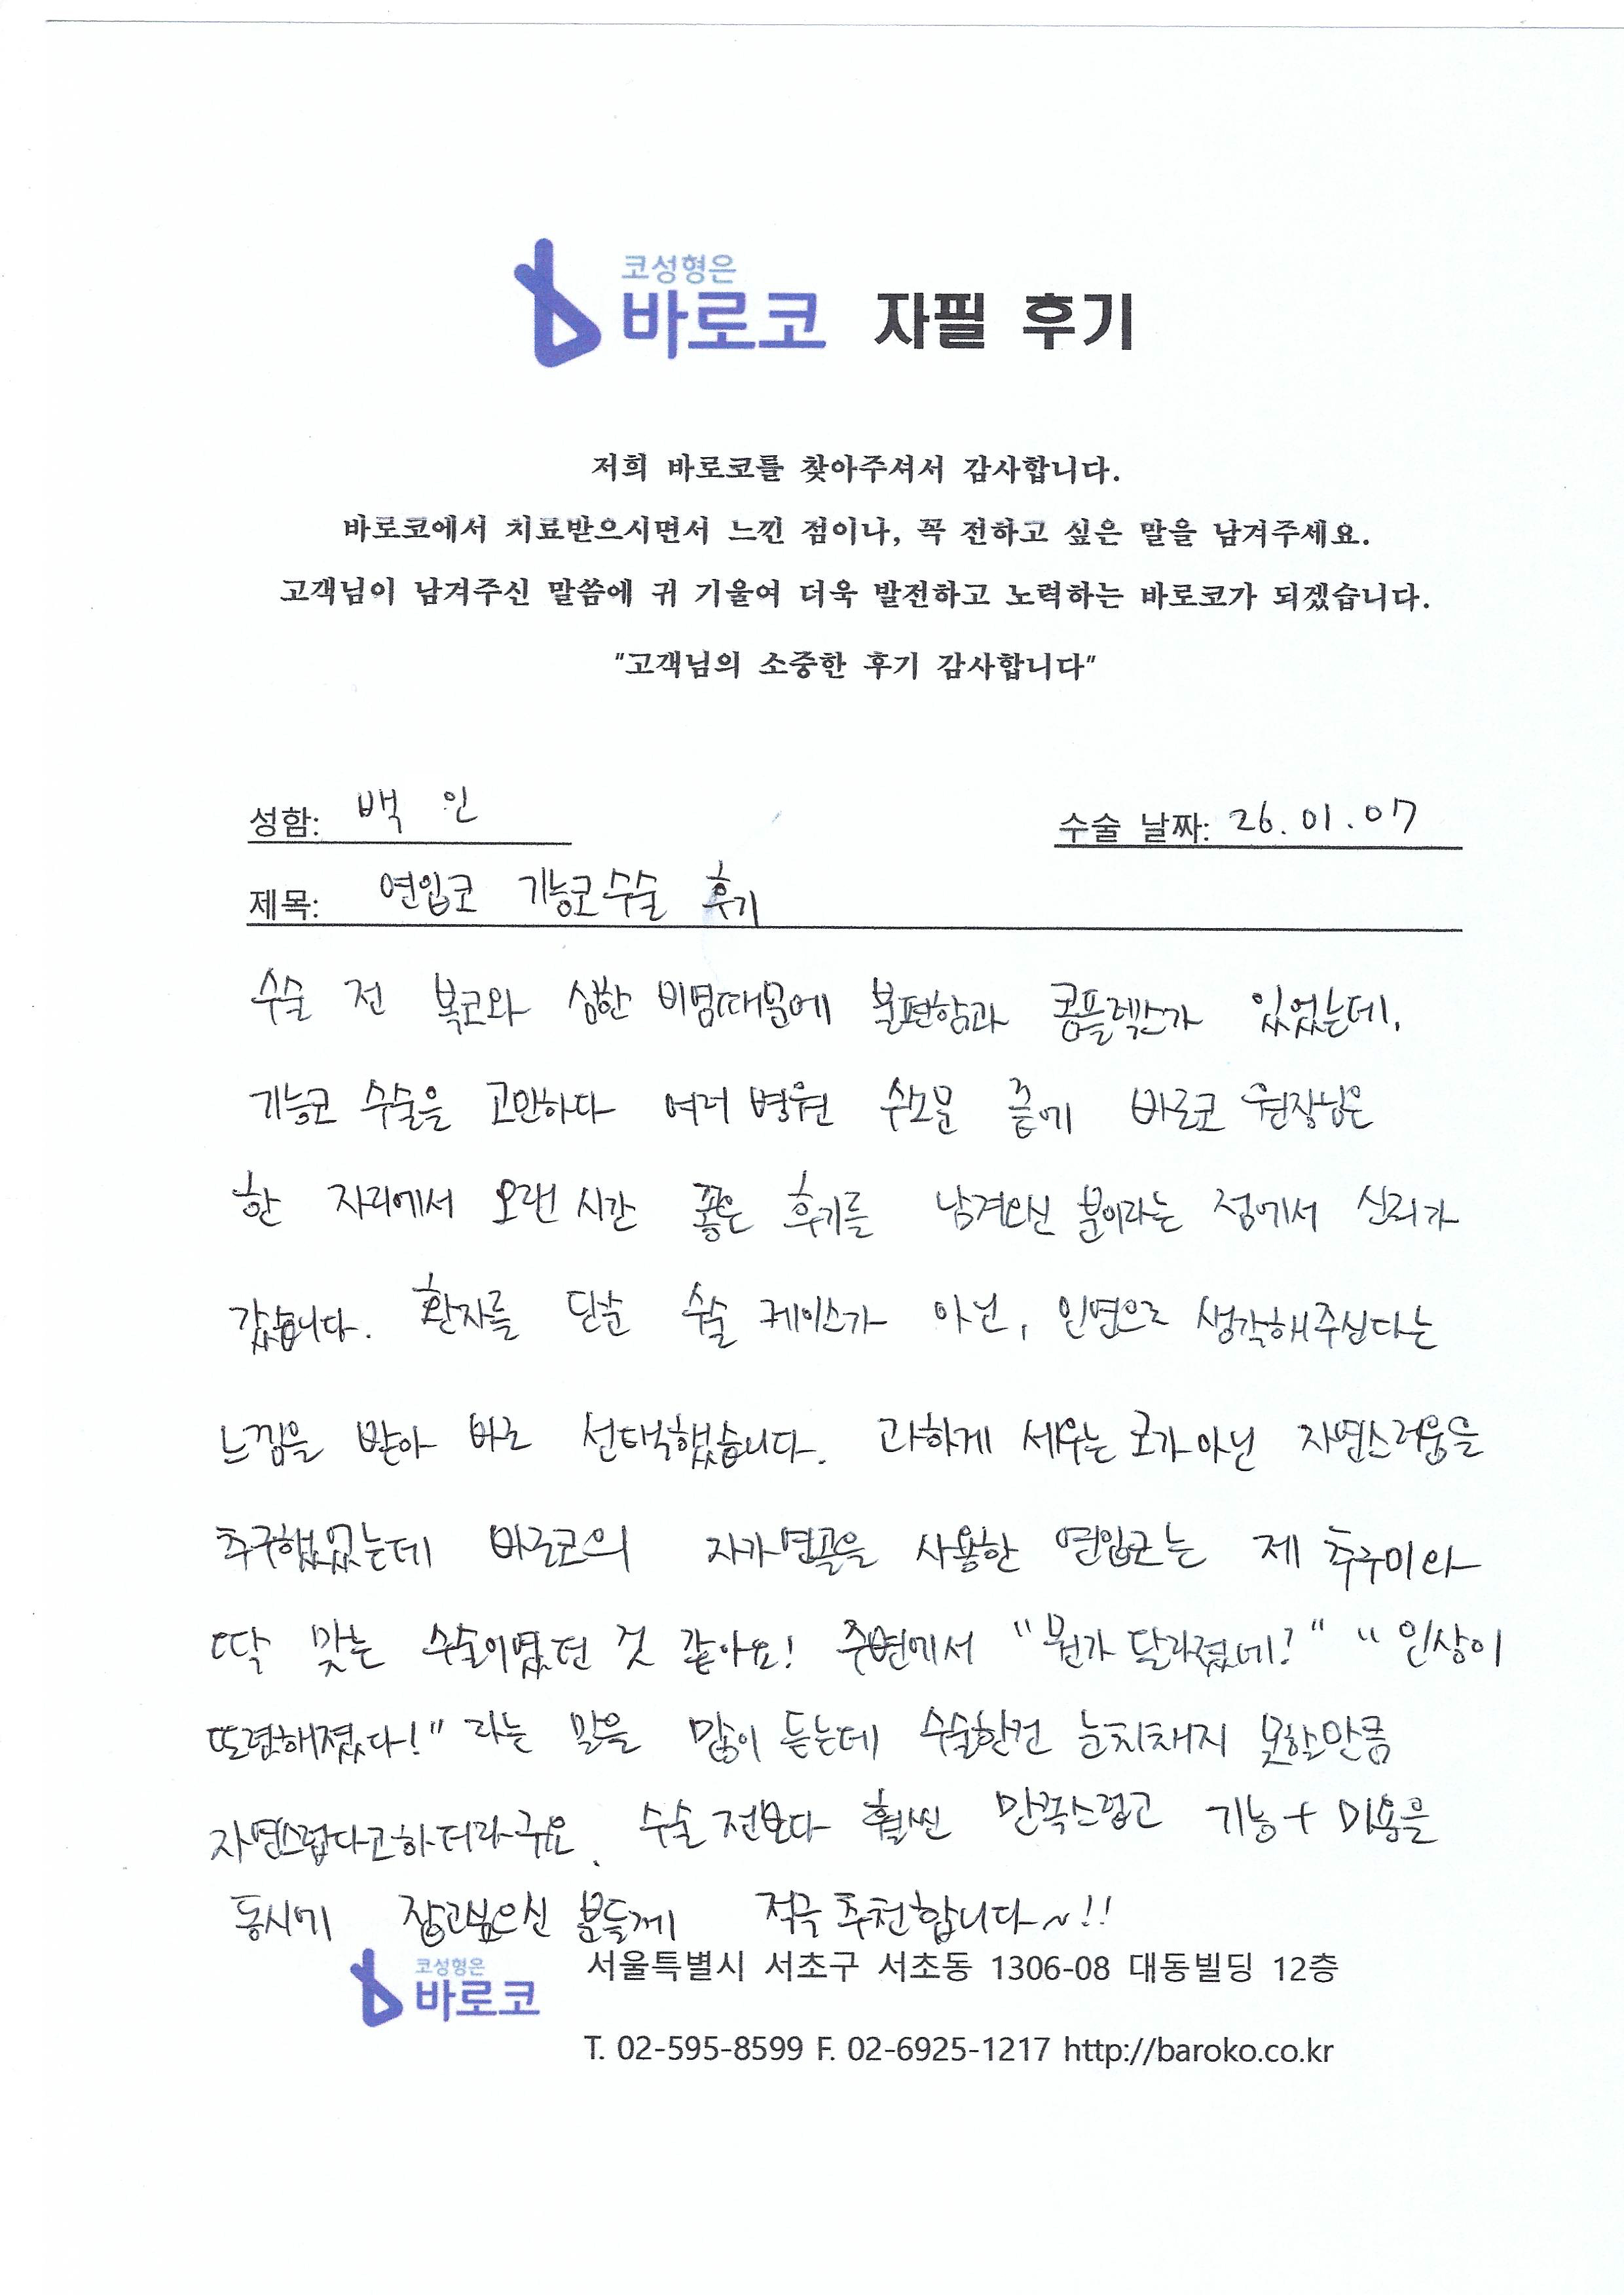 코성형은
바로코 자필 후기
저희 바로코를 찾아주셔서 감사합니다.
바로코에서 치료받으시면서 느낀 점이나, 꼭 전하고 싶은 말을 남겨주세요.
고객님이 남겨주신 말씀에 귀 기울여 더욱 발전하고 노력하는 바로코가 되겠습니다.
"고객님의 소중한 후기 감사합니다"
성함: 백 인
수술 날짜: 26.01.07
제목: 연입코 기능코수술 후기
수술 전 복코와 심한 비염때문에 불편함과 콤플렉스가 있었는데,
기능코 수술을 고민하다 여러 병원 수소문 끝에 바로코 원장님은
한 자리에서 오랜 시간 좋은 후기를 남겨오신 분이라는 점에서 신뢰가
갔습니다. 환자를 단순 수술 케이스가 아닌, 인연으로 생각해주신다는
느낌을 받아 바로 선택했습니다. 과하게 세우는 코가 아닌 자연스러움을
추구했었는데 바로코의 자가연골을 사용한 연입코는 제 추구미와
딱 맞는 수술이였던 것 같아요! 주변에서 "뭔가 달라졌네?" "인상이
또렷해졌다!" 라는 말을 많이 듣는데 수술한건 눈치채지 못할만큼
자연스럽다고하더라구요. 수술 전보다 훨씬 만족스럽고 기능+미용을
동시에 잡고싶으신 분들께 적극 추천합니다~!!
코성형은
바로코
서울특별시 서초구 서초동 1306-08 대동빌딩 12층
T. 02-595-8599 F. 02-6925-1217 http://baroko.co.kr